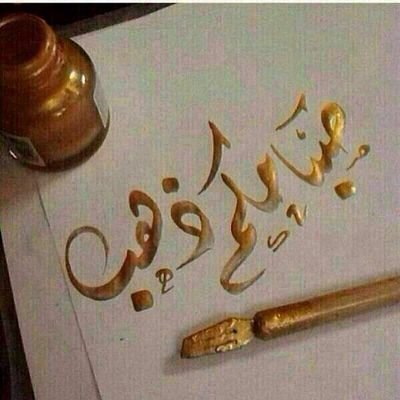 صباحكم ذهب